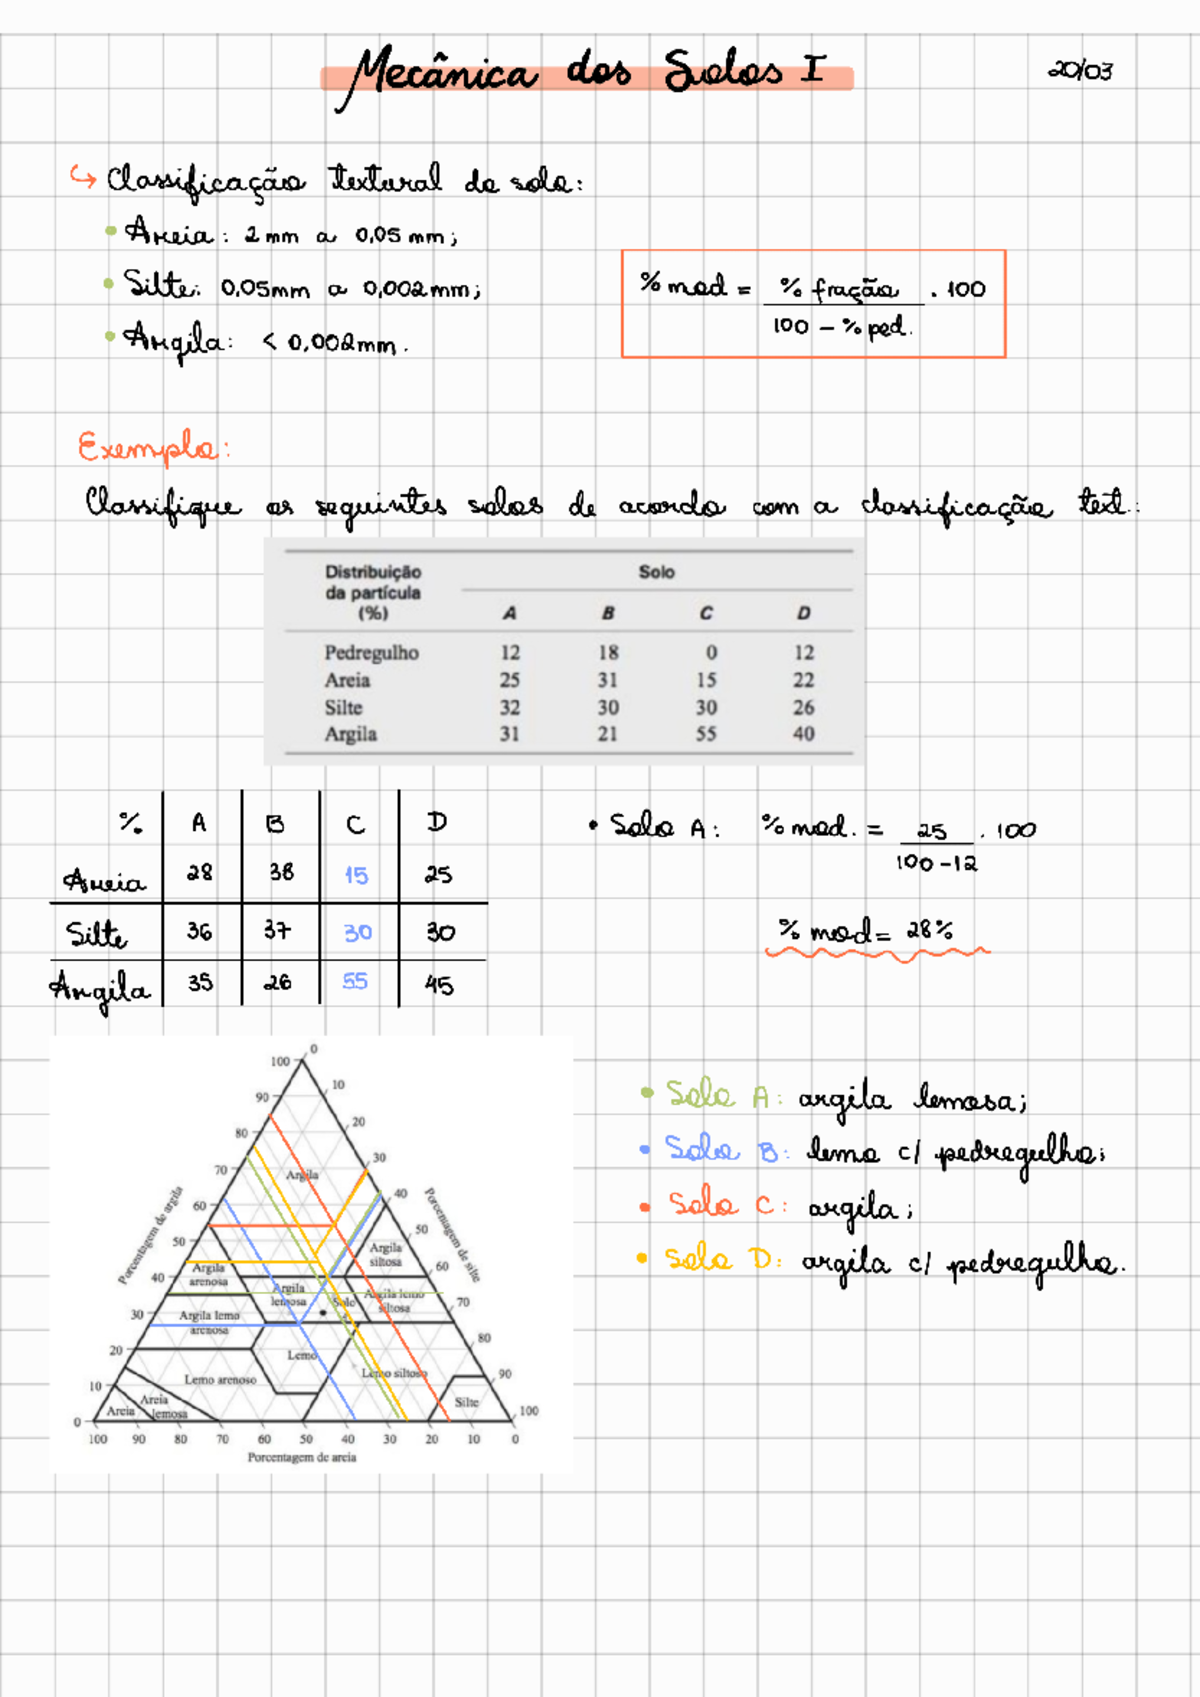 Mecânica dos Solos I
20/03
↳ Classificação textural do solo:
• Areia: 2mm a 0,05mm;
• Silte: 0,05mm a 0,002mm;
• Argila: < 0,002mm.
% mod = % fração . 100
100 - % ped.
Exemplo:
Classifique os seguintes solos de acordo com a classificação text.:
Distribuição da partícula (%) Solo
A B C D
Pedregulho 12 18 0 12
Areia 25 31 15 22
Silte 32 30 30 26
Argila 31 21 55 40
% A B C D
Areia 28 38 15 25
Silte 36 37 30 30
Argila 35 26 55 45
• Solo A: % mod. = 25 . 100
100-12
% mod = 28%
• Solo A: argila lemosa;
• Solo B: lemo c/ pedregulho;
• Solo C: argila;
• Solo D: argila c/ pedregulho.
0 10 20 30 40 50 60 70 80 90 100
100 90 80 70 60 50 40 30 20 10 0
Porcentagem de argila
Porcentagem de silte
Argila
Argila siltosa
Argila arenosa
Argila lemosa
Solo
Argila lemo siltosa
Argila lemo arenosa
Lemo
Lemo arenoso
Lemo siltoso
Areia
Areia lemosa
Silte
100 90 80 70 60 50 40 30 20 10 0
Porcentagem de areia